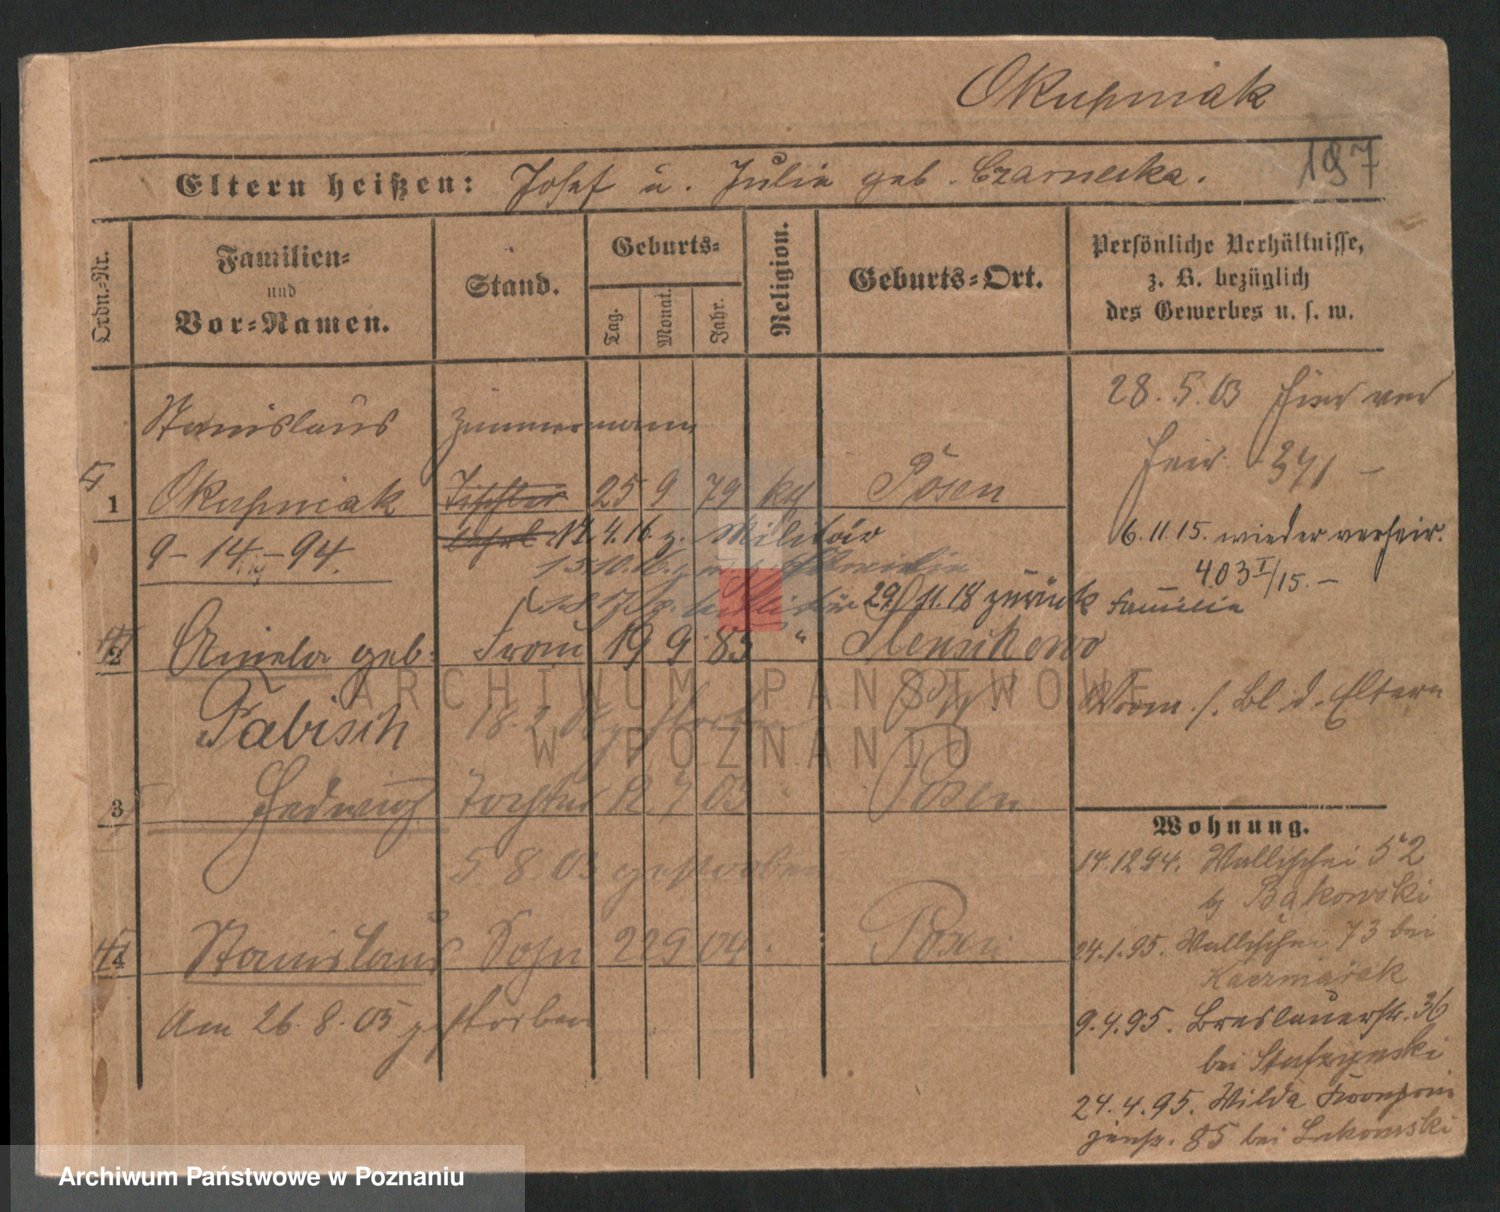 Okupniak
Eltern heißen: Josef u. Julie geb. Czarnecka.
197
Ordn.-Nr.
Familien-
und
Vor-Namen.
Stand.
Geburts-
Tag.
Monat.
Jahr.
Religion.
Geburts-Ort.
Persönliche Verhältnisse,
z. B. bezüglich
des Gewerbes u. s. w.
Stanislaus Zimmermann
28. 5. 03 hier ver
heir. 371 -
1 Okupniak Tischler 25 9 79 kath Posen
9 - 14. - 94. 17. 4. 16. z. Militär
6. 11 15. wieder verheir.
403 I/15. -
29/11. 18 zurück Familie
2 Aniela geb. Frau 19 9. 83 " Slensikowo
Fabisch 18. 2. gestorben
Vorm. s. Bl d. Eltern
3 Hedwig Tochter 12 7 03 Posen
5. 8. 03 gestorben
4 Stanislaus Sohn 22 9 04. Posen
Am 26. 8. 05 gestorben
Wohnung.
14. 12 94. Wallischei 52
b/ Bąkowski
24. 1. 95. Wallischei 73 bei
Kaczmarek
9. 4. 95. Breslauerstr. 36
bei
24. 4. 95. Wilda Kronprin
zenstr. 85 bei Lukomski
ARCHIWUM PAŃSTWOWE
W POZNANIU
Archiwum Państwowe w Poznaniu